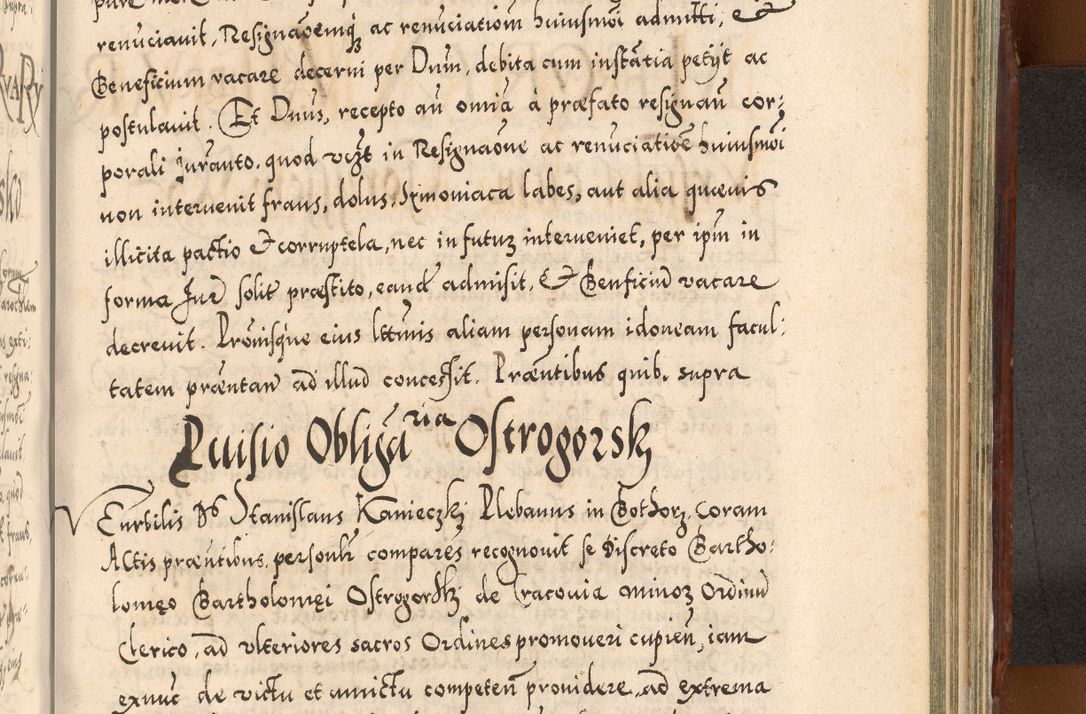 renuciauit, Resignaoemq́; ac renuciationi huiusmōi admitti, et
Beneficium vacare decerni per Dnm̄, debita cum instātia petijt ac
postulauit. Et Dnus, recepto aū omiā à præfato resignaū cor:
porali Juranto, quod vczt in Resignaone ac renuciatiōe huiusmōi
non interuenit fraus, dolus, Symoniaca labes, aut alia quæuis
illicita pactio et corruptela, nec in futuꝝ interueniet, per ipm̄ in
forma Jur solit præstito, eand admisit, et Beneficiū vacare
decreuit. Prouisqȝ eius lrtmis aliam personam idoneam facul:
tatem præntan ad illud concessit. Præntibus quib. supra
Puisio Obligāria Ostrogorsk
Eurbilis Ds Stanislaus Kanieczkj Plebanus in Bothorz, coram
Actis præntibus, personlr compares recognouit se Discreto Bartho:
lomeo Bartholomęi Ostrogorskj de Cracouia minoꝝ Ordinū
Clerico, ad vlteriores sacros Ordines promoueri cupien, iam
exnuc de victu et amictu competen prouidere, ad extrema